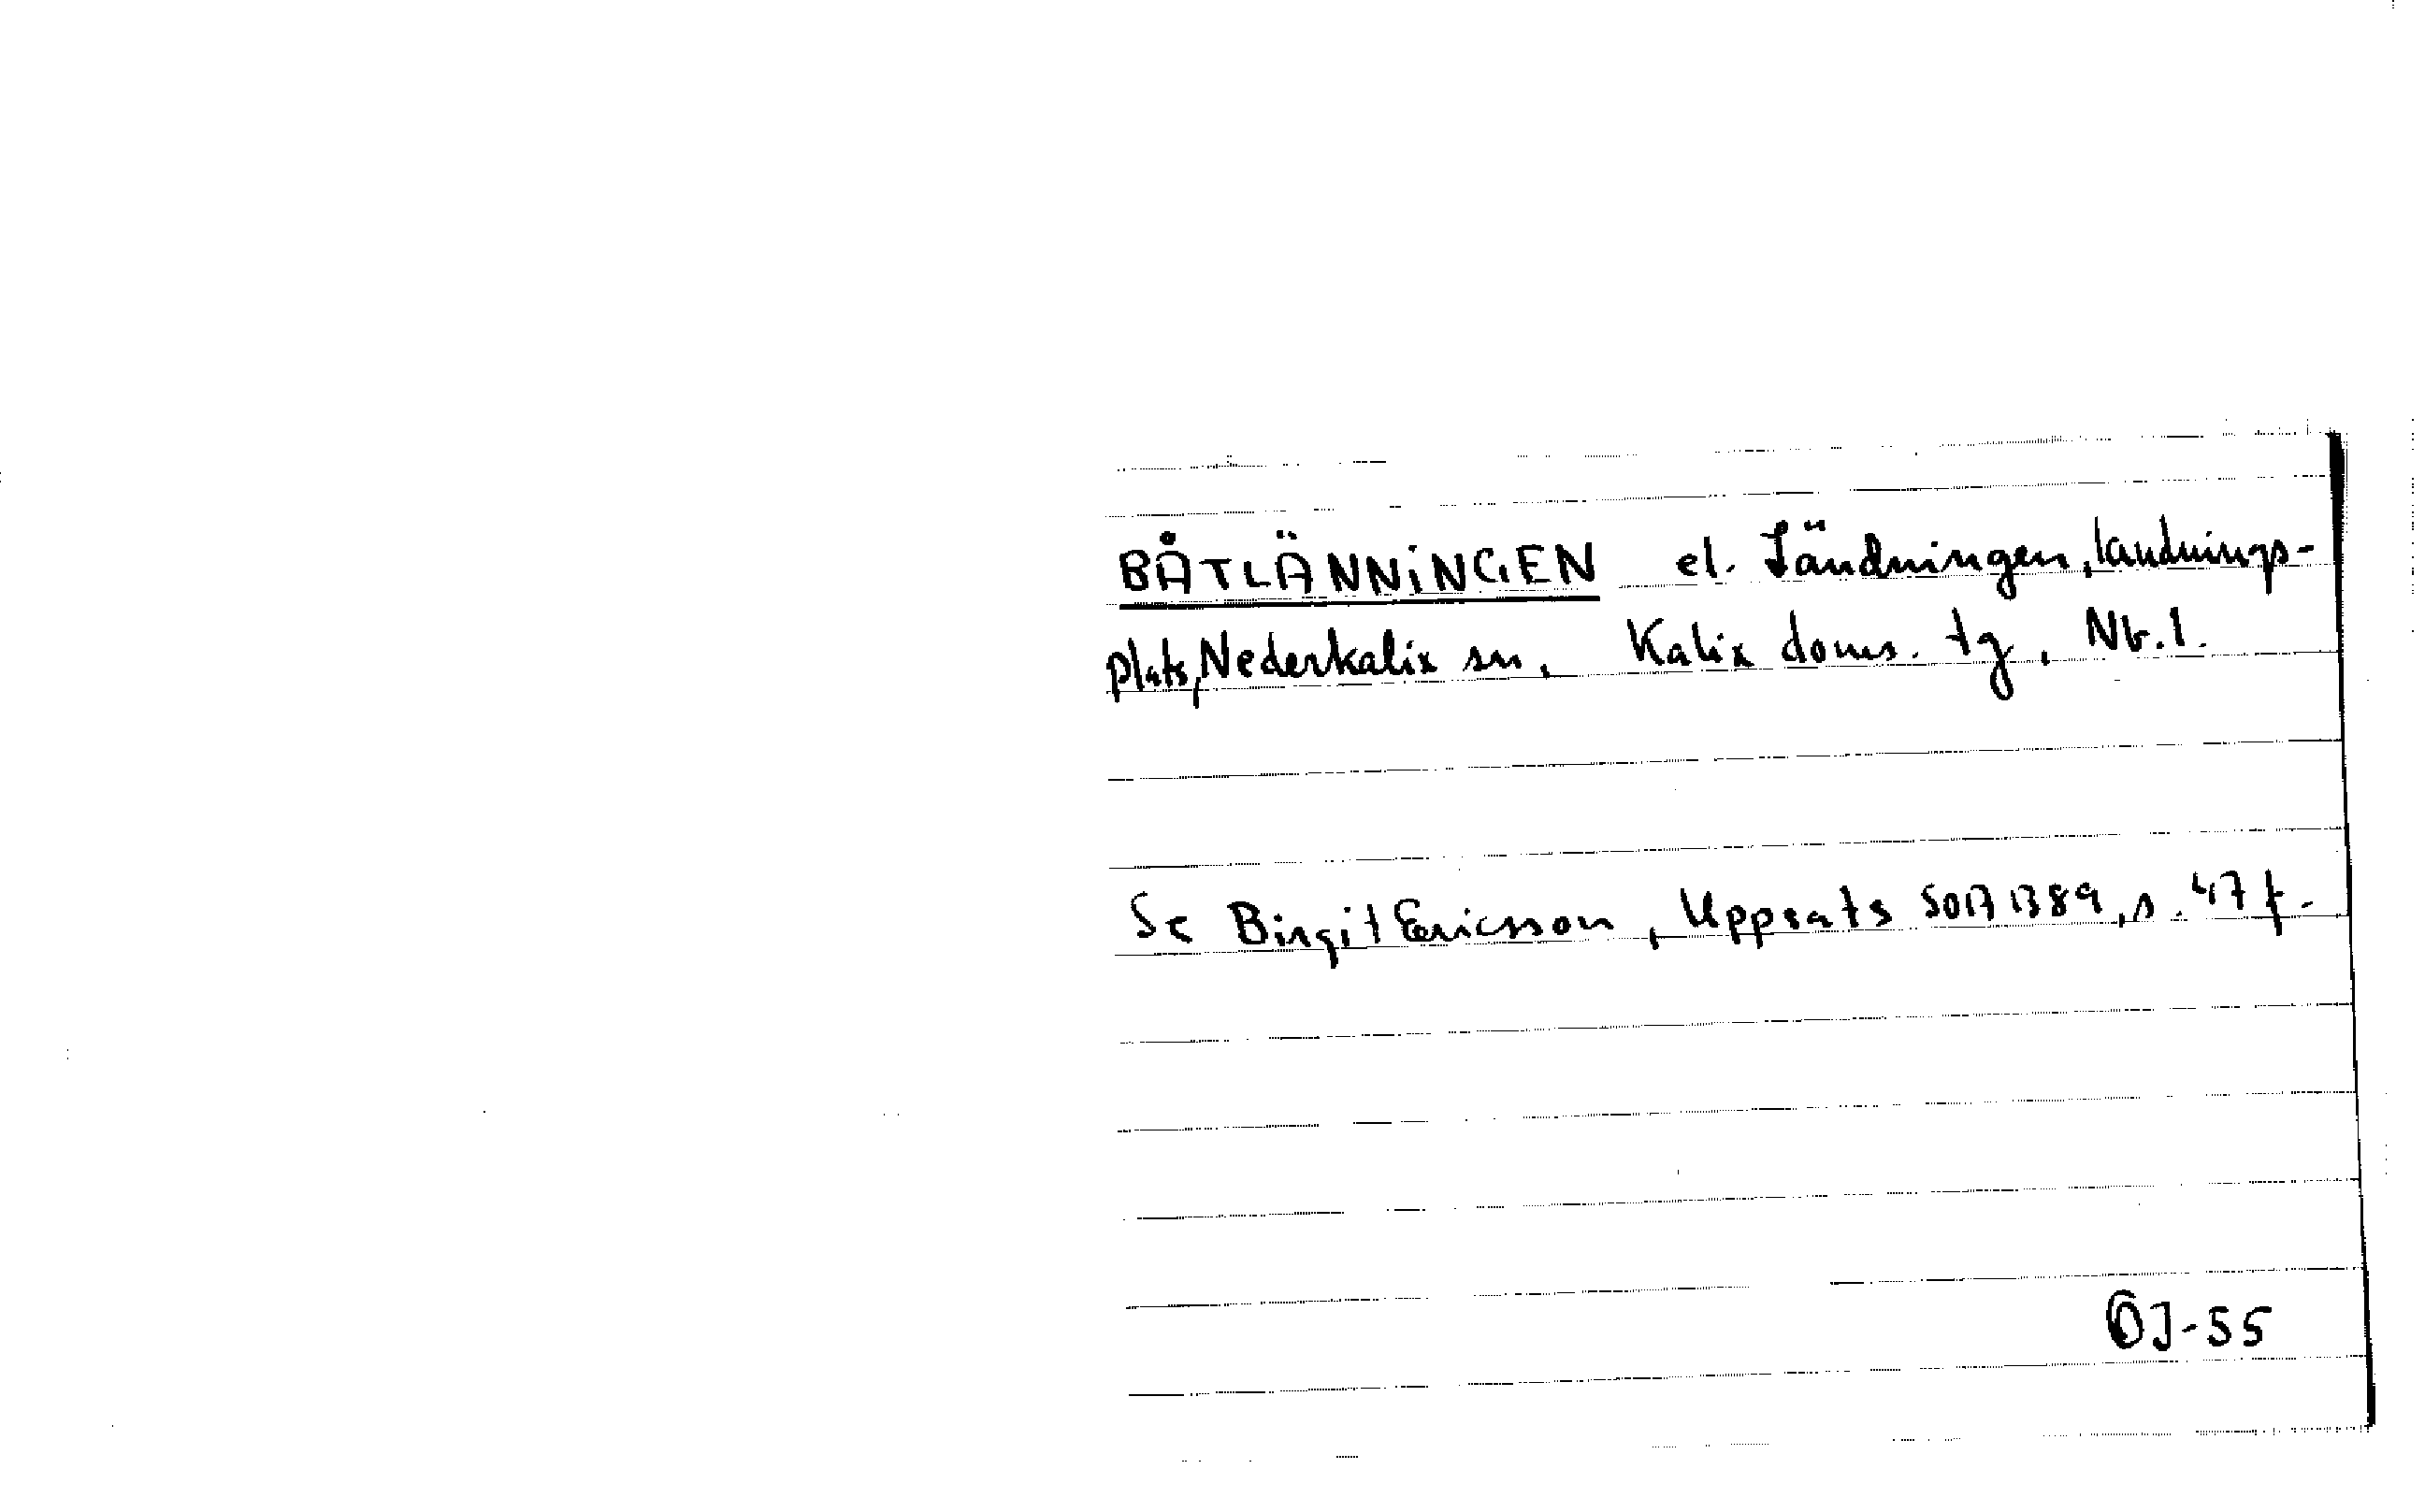 BÅTLÄNNINGEN el. Ländningen, landnings-
plats, Nederkalix sn, Kalix doms. tg, Nb. l.
Se Birgit Ericsson, Uppsats SOA 1389, s. 47 f.
ÖJ-55